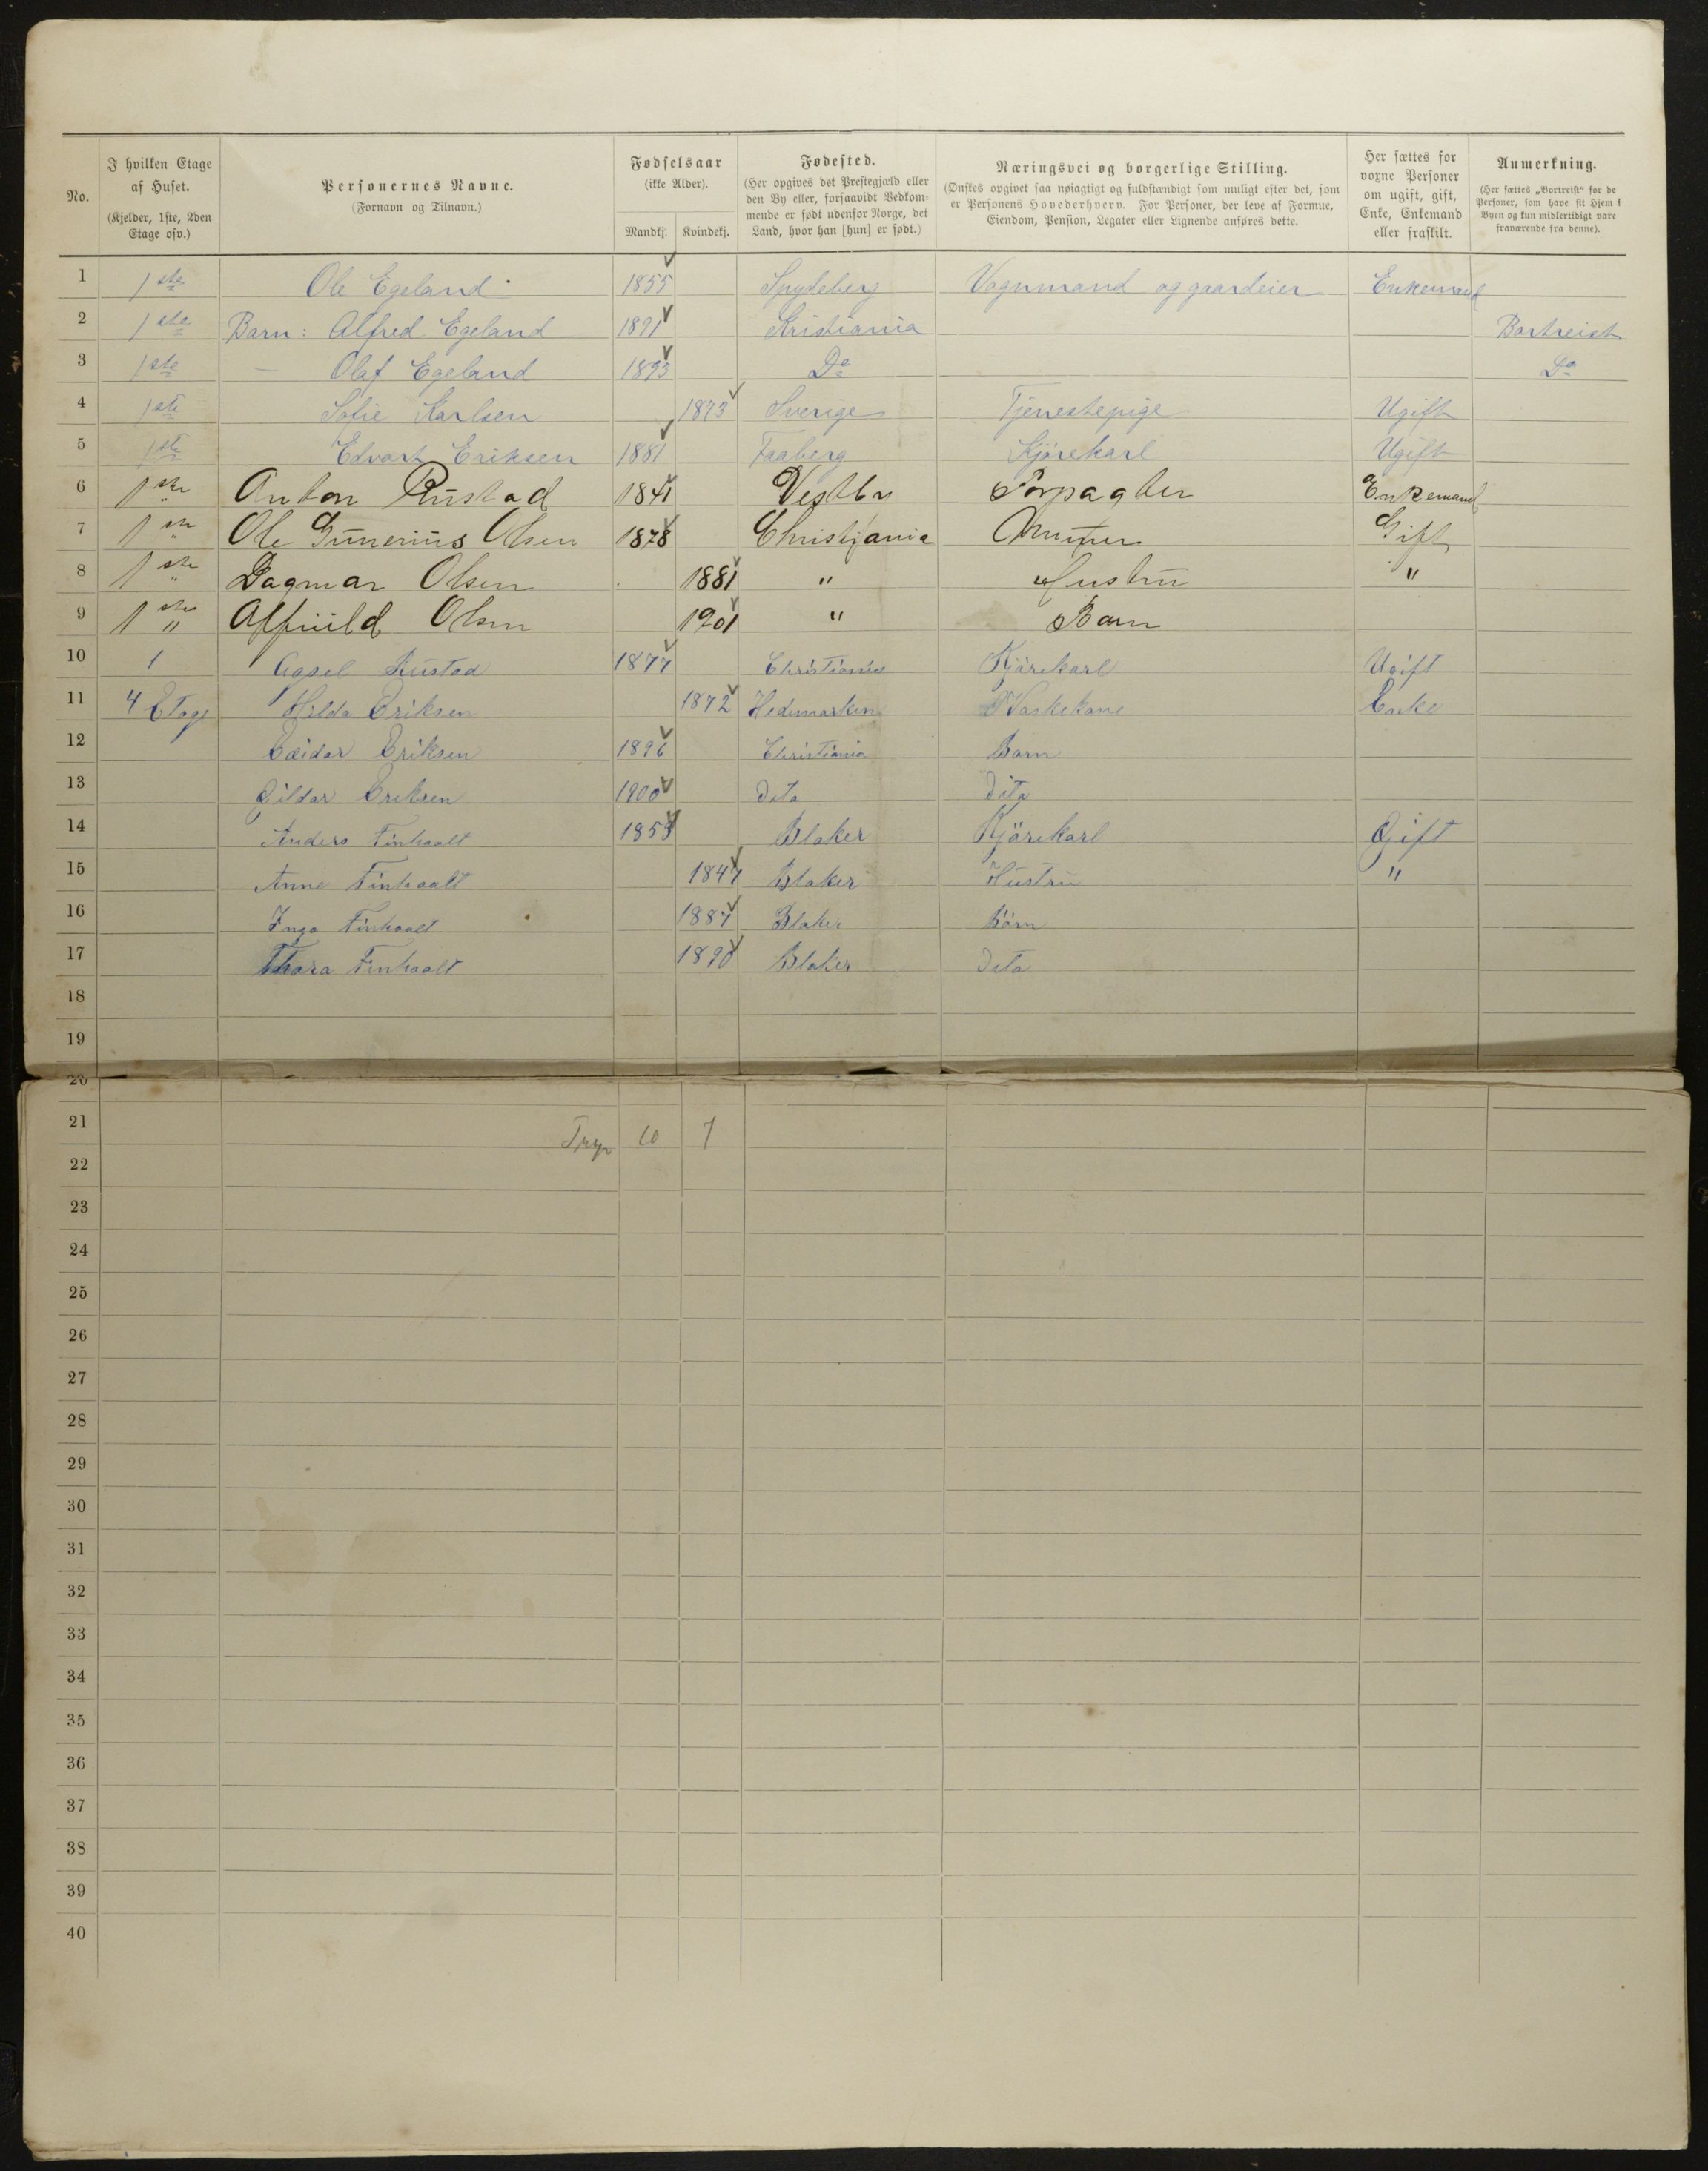 No. | I hvilken Etage af Huset. (Kjelder, 1ste, 2den Etage osv.) | Personernes Navne. (Fornavn og Tilnavn.) | Fødselsaar (ikke Alder). Mandkj. | Kvindekj. | Fødested. (Her opgives det Prestegjæld eller den By eller, forsaavidt Vedkommende er født udenfor Norge, det Land, hvor han [hun] er født.) | Næringsvei og borgerlige Stilling. (Ønskes opgivet saa nøiagtigt og fuldstændigt som muligt efter det, som er Personens Hovederhverv. For Personer, der leve af Formue, Eiendom, Pension, Legater eller Lignende anføres dette. | Her sættes for voxne Personer om ugift, gift, Enke, Enkemand eller fraskilt. | Anmerkning. (Her sættes „Bortreist“ for de Personer, som have sit Hjem i Byen og kun midlertidigt vare fraværende fra denne).
1 1ste Ole Egeland 1855 Spydeberg Vognmand og gaardeier Enkemand
2 1ste Barn: Alfred Egeland 1891 Kristiania Bortreist
3 1ste — Olaf Egeland 1893 Do Do
4 1ste Sofie Karlsen 1873 Sverige Tjenestepige Ugift
5 1ste Edvart Eriksen 1881 Faaberg Kjørekarl Ugift
6 1ste Anton Rustad 1841 Vestby Forpagter Enkemand
7 1ste Ole Gunerius Olsen 1878 Christjania Murer Gift
8 1ste Dagmar Olsen 1881 " Hustru "
9 1ste Olsen 1901 " Barn
10 1 Agsel Rustad 1877 Christiania Kjørekarl Ugift
11 4 Etage Hilda Eriksen 1872 Hedemarken Vaskekone Enke
12 Eriksen 1896 Christiania Barn
13 Gildar Eriksen 1900 Dito Dito
14 Anders Finhaalt 1853 Blaker Kjørekarl Gift
15 Anne Finhaalt 1847 Blaker Hustru "
16 Inga Finhaalt 1887 Blaker Børn
17 Thora Finhaalt 1890 Blaker Dito
18
19
20
21 10 7
22
23
24
25
26
27
28
29
30
31
32
33
34
35
36
37
38
39
40